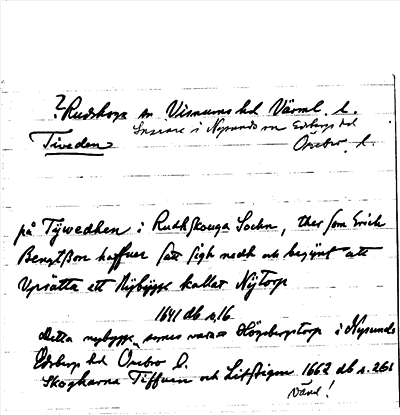 ? Rudskoga sn Visnums hd Värml. l.
Snarare i Nysunds sn Edsbergs hd
Tiveden Örebro l.
på Tÿwedhen i Rudhskouga Sochn, ther som Erich
Bengtsson haffuer satt sigh nedh och begÿnt att
Upsätta ett Nÿbÿgge kallat Nÿtorp
1641 db s. 16
Detta nybygge synes vara Högsbergstorp i Nysunds
Edsbergs hd Örebro l.
Skogharna Tiffuen och 1662 db s. 261
Värml!